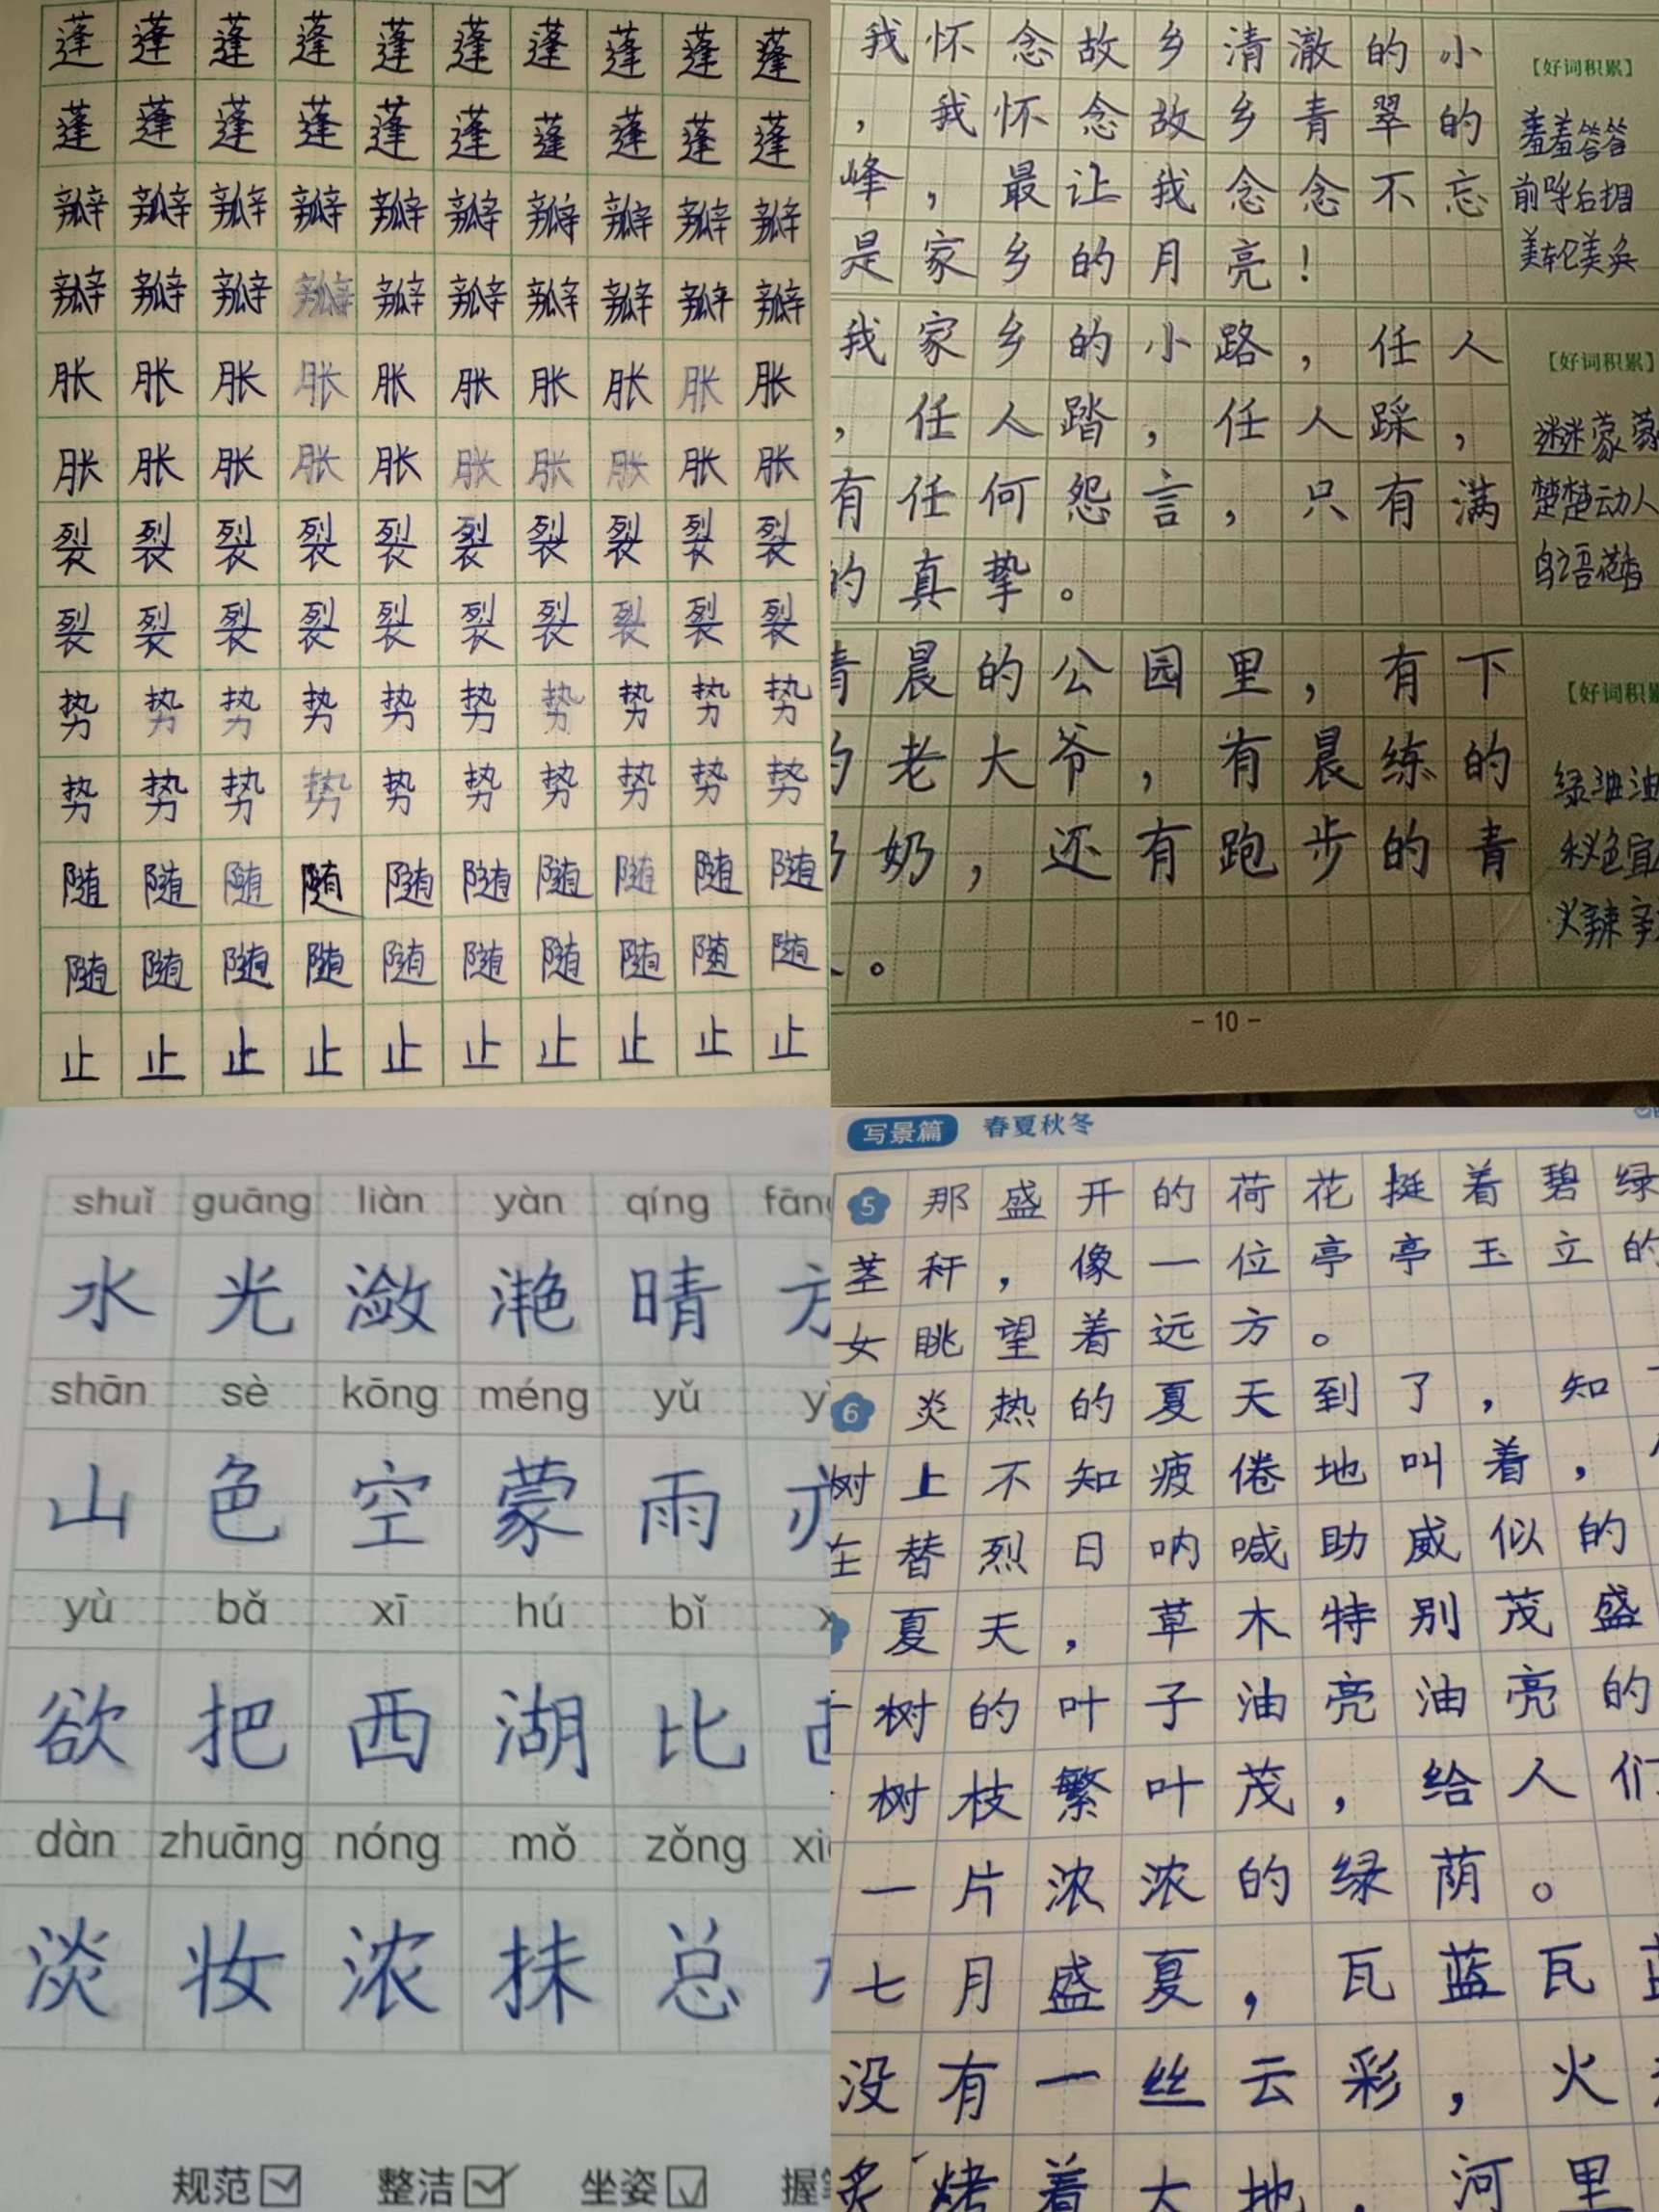 蓬蓬蓬蓬蓬蓬蓬蓬蓬蓬
蓬蓬蓬蓬蓬蓬蓬蓬蓬蓬
瓣瓣瓣瓣瓣瓣瓣瓣瓣瓣
瓣瓣瓣瓣瓣瓣瓣瓣瓣瓣
胀胀胀胀胀胀胀胀胀胀
胀胀胀胀胀胀胀胀胀胀
裂裂裂裂裂裂裂裂裂裂
裂裂裂裂裂裂裂裂裂裂
势势势势势势势势势势
势势势势势势势势势势
随随随随随随随随随随
随随随随随随随随随随
止止止止止止止止止止
我怀念故乡清澈的小
，我怀念故乡青翠的
峰，最让我念念不忘
是家乡的月亮！
【好词积累】
羞羞答答
前呼后拥
美轮美奂
我家乡的小路，任人
，任人踏，任人踩，
有任何怨言，只有满
的真挚。
【好词积累】
迷迷蒙蒙
楚楚动人
鸟语花香
晨的公园里，有下
老大爷，有晨练的
奶，还有跑步的青
。
【好词积累
绿油油
秋色宜
火辣辣
-10-
shuǐ guāng liàn yàn qíng fāng
水光潋滟晴方
shān sè kōng méng yǔ
山色空蒙雨亦
yù bǎ xī hú bǐ
欲把西湖比西
dàn zhuāng nóng mǒ zǒng xi
淡妆浓抹总
规范 整洁 坐姿 握
写景篇 春夏秋冬
5 那盛开的荷花挺着碧绿
茎秆，像一位亭亭玉立的
女眺望着远方。
6 炎热的夏天到了，知
树上不知疲倦地叫着，
在替烈日呐喊助威似的
夏天，草木特别茂盛
树的叶子油亮油亮的
树枝繁叶茂，给人们
一片浓浓的绿荫。
七月盛夏，瓦蓝瓦蓝
没有一丝云彩，火
炙烤着大地，河里